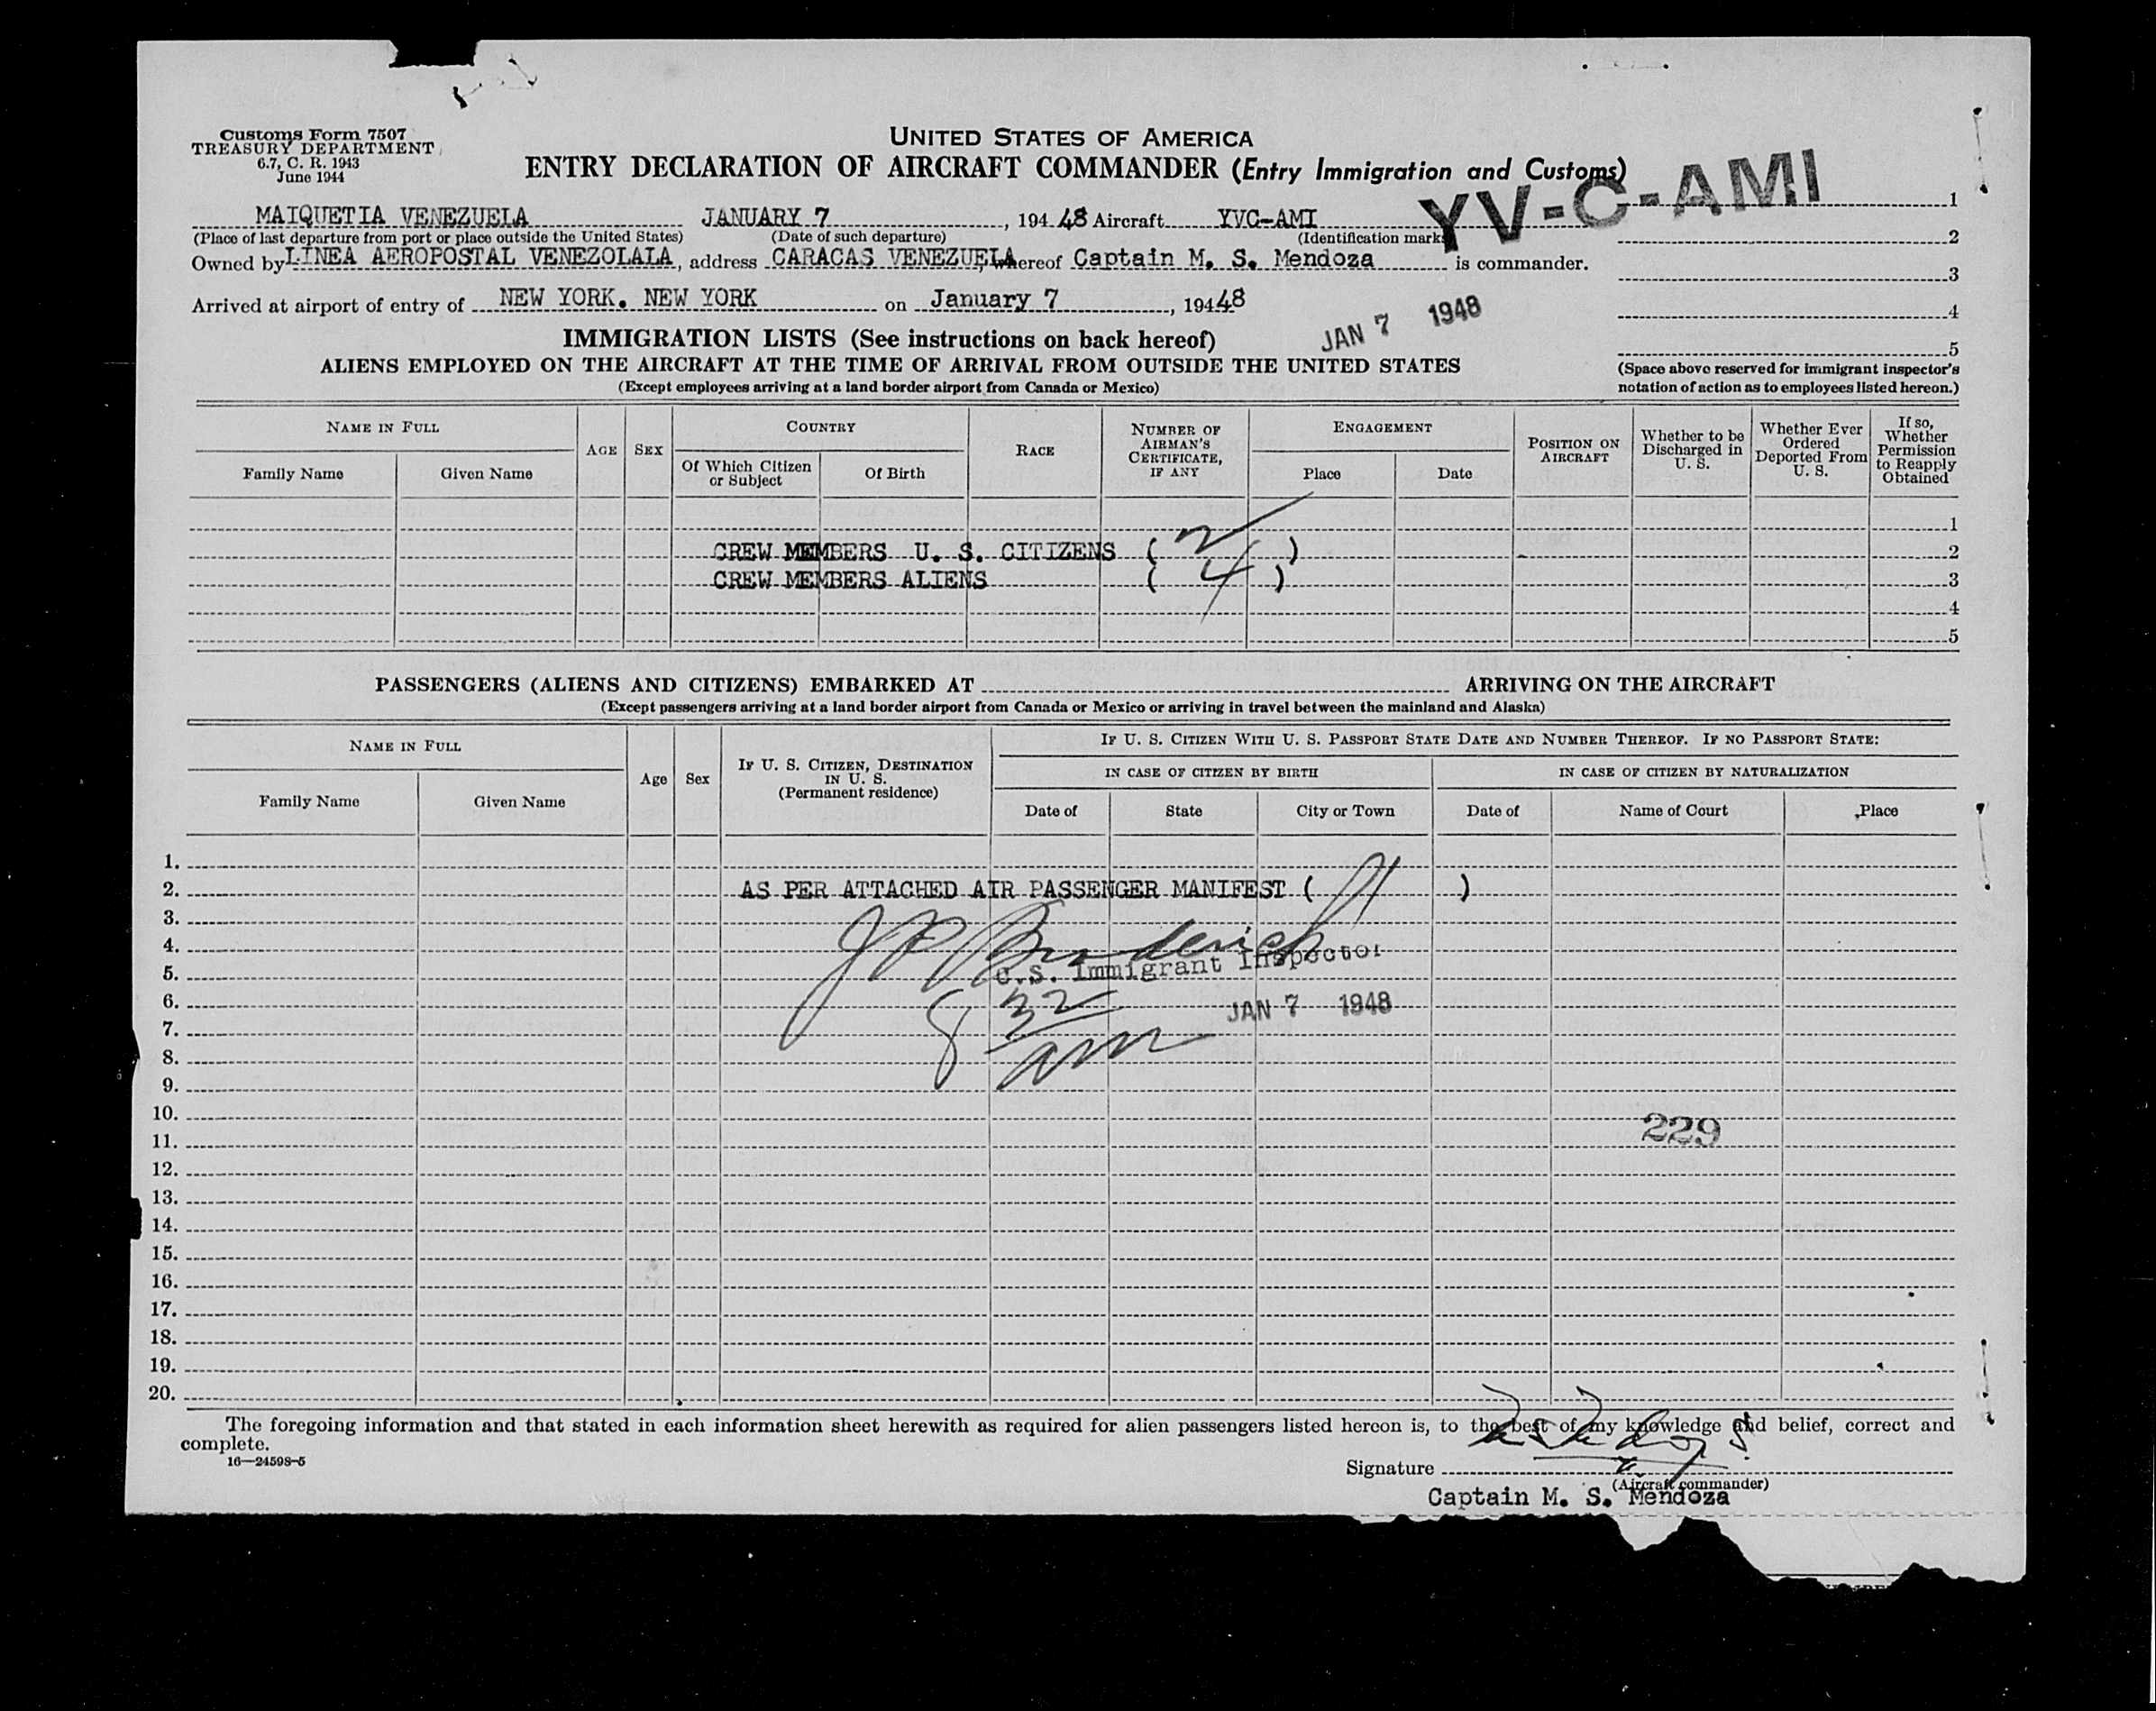 Customs Form 7507
TREASURY DEPARTMENT
6.7, C. R. 1943
June 1944
UNITED STATES OF AMERICA
ENTRY DECLARATION OF AIRCRAFT COMMANDER (Entry Immigration and Customs)
YV-C-AMI
MAIQUETIA VENEZUELA JANUARY 7, 194 48 Aircraft YVC-AMI
(Place of last departure from port or place outside the United States) (Date of such departure) (Identification marks
Owned by LINEA AEROPOSTAL VENEZOLALA, address CARACAS VENEZUELA, whereof Captain M. S. Mendoza is commander.
Arrived at airport of entry of NEW YORK. NEW YORK on January 7, 194 48
JAN 7 1948
1
2
3
4
5
(Space above reserved for immigrant inspector's
notation of action as to employees listed hereon.)
IMMIGRATION LISTS (See instructions on back hereof)
ALIENS EMPLOYED ON THE AIRCRAFT AT THE TIME OF ARRIVAL FROM OUTSIDE THE UNITED STATES
(Except employees arriving at a land border airport from Canada or Mexico)
NAME IN FULL
Family Name
Given Name
AGE
SEX
COUNTRY
Of Which Citizen
or Subject
Of Birth
RACE
NUMBER OF
AIRMAN'S
CERTIFICATE,
IF ANY
ENGAGEMENT
Place
Date
POSITION ON
AIRCRAFT
Whether to be
Discharged in
U. S.
Whether Ever
Ordered
Deported From
U. S.
If so,
Whether
Permission
to Reapply
Obtained
1
CREW MEMBERS U. S. CITIZENS ( 2 ) 2
CREW MEMBERS ALIENS ( 4 ) 3
4
5
PASSENGERS (ALIENS AND CITIZENS) EMBARKED AT ARRIVING ON THE AIRCRAFT
(Except passengers arriving at a land border airport from Canada or Mexico or arriving in travel between the mainland and Alaska)
NAME IN FULL
Family Name
Given Name
Age
Sex
IF U. S. CITIZEN, DESTINATION
IN U. S.
(Permanent residence)
IF U. S. CITIZEN WITH U. S. PASSPORT STATE DATE AND NUMBER THEREOF. IF NO PASSPORT STATE:
IN CASE OF CITIZEN BY BIRTH
IN CASE OF CITIZEN BY NATURALIZATION
Date of
State
City or Town
Date of
Name of Court
Place
1.
2. AS PER ATTACHED AIR PASSENGER MANIFEST ( )
3.
4. J P Broderick
5. U.S. Immigrant Inspector
6. 8 32 JAN 7 1948
7. am
8.
9.
10. 229
11.
12.
13.
14.
15.
16.
17.
18.
19.
20.
The foregoing information and that stated in each information sheet herewith as required for alien passengers listed hereon is, to the best of my knowledge and belief, correct and
complete.
16—24598-5
Signature
(Aircraft commander)
Captain M. S. Mendoza